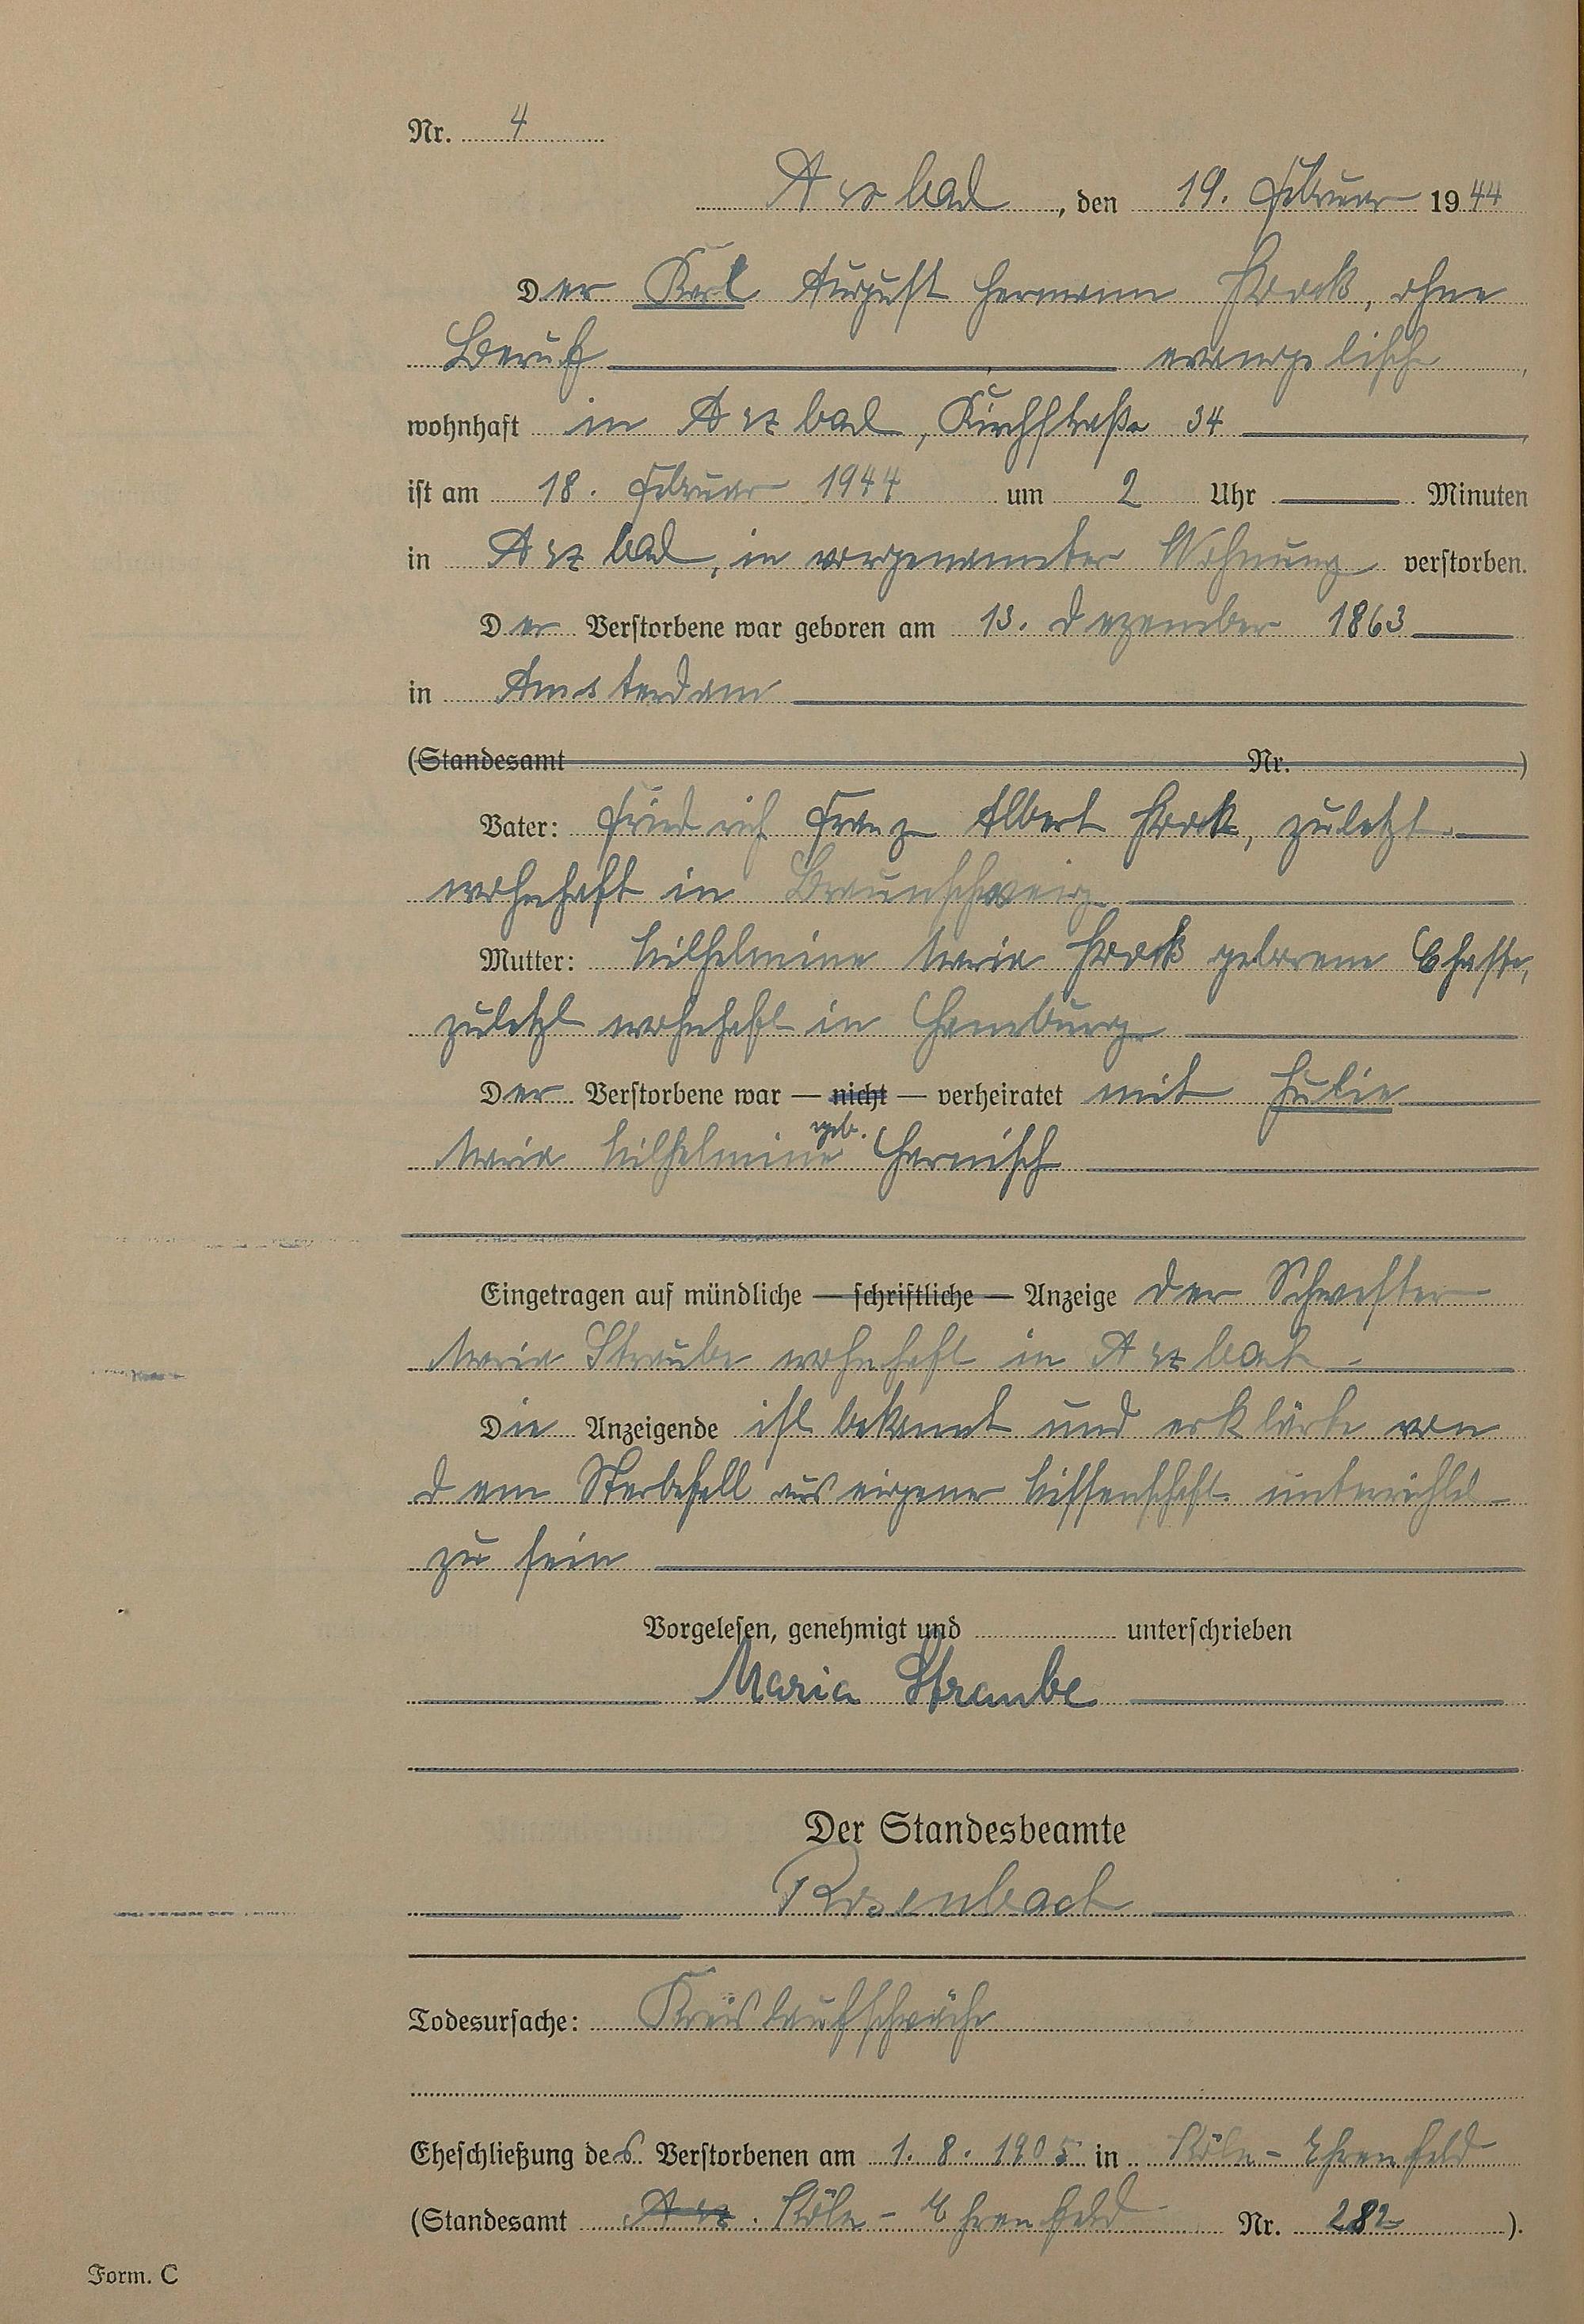 Nr. 4
Arzbach, den 19. Februar 1944
Der Karl August Hermann, ohne
Beruf evangelisch,
wohnhaft in Arzbach, Kirchstraße 34
ist am 18. Februar 1944 um 2 Uhr Minuten
in Arzbach, in vorgenannter Wohnung verstorben.
Der Verstorbene war geboren am 13. Dezember 1863
in Amsterdam
(Standesamt Nr. )
Vater: Friedrich Franz Albert, zuletzt
wohnhaft in Braunschweig
Mutter: Wilhelmine Maria geborene
zuletzt wohnhaft in Hamburg
Der Verstorbene war — nicht — verheiratet mit Julie
Maria Wilhelmine geb. Harnisch
Eingetragen auf mündliche — schriftliche — Anzeige der Schwester
Maria Straube wohnhaft in Arzbach
Die Anzeigende ist bekannt und erklärte von
dem Sterbefall aus eigener Wissenschaft unterrichtet
zu sein
Vorgelesen, genehmigt und unterschrieben
Maria Straube
Der Standesbeamte
Rosenbach
Todesursache: Kreislaufschwäche
Eheschließung des Verstorbenen am 1. 8. 1905 in Köln-Ehrenfeld
(Standesamt Arz. Köln-Ehrenfeld Nr. 282 ).
Form. C